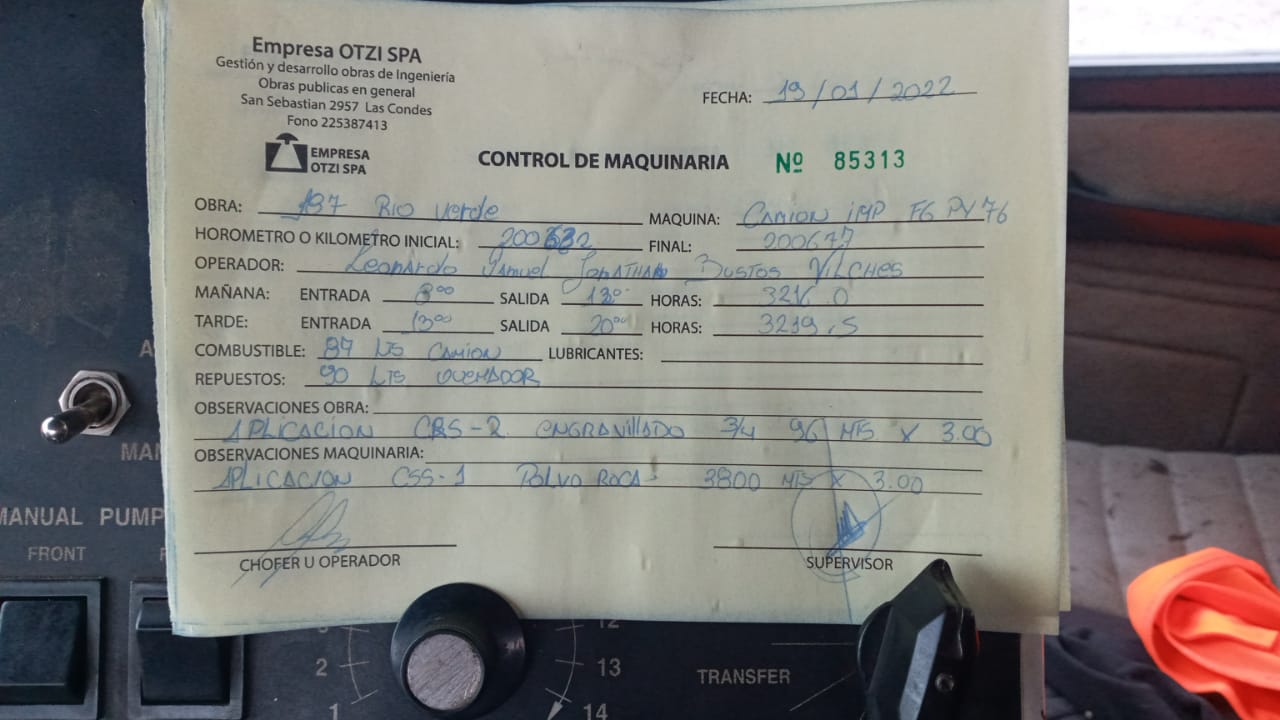 Empresa OTZI SPA
Gestión y desarrollo obras de Ingeniería
Obras publicas en general
San Sebastian 2957 Las Condes
Fono 225387413
EMPRESA
OTZI SPA
FECHA: 19/01/2022
CONTROL DE MAQUINARIA Nº 85313
OBRA: 137 Rio Verde MAQUINA: CAMION iMP FG PY 76
HOROMETRO O KILOMETRO INICIAL: FINAL: 200677
OPERADOR: Leonardo Samuel Jonathan Bustos Vilches
MAÑANA: ENTRADA 8:00 SALIDA HORAS:
TARDE: ENTRADA 13:00 SALIDA 20:00 HORAS: 3219.5
COMBUSTIBLE: 87 LTS CAMION LUBRICANTES:
REPUESTOS: 90 LTS QUEMADOR
OBSERVACIONES OBRA:
APLICACION CRS-2 ENGRANILLADO 3/4 96 MTS X 3.00
OBSERVACIONES MAQUINARIA:
APLICACION CSS-1 POLVO ROCA 3800 MTS X 3.00
CHOFER U OPERADOR SUPERVISOR
MANUAL PUMP
FRONT
2
1
12
13
14
TRANSFER